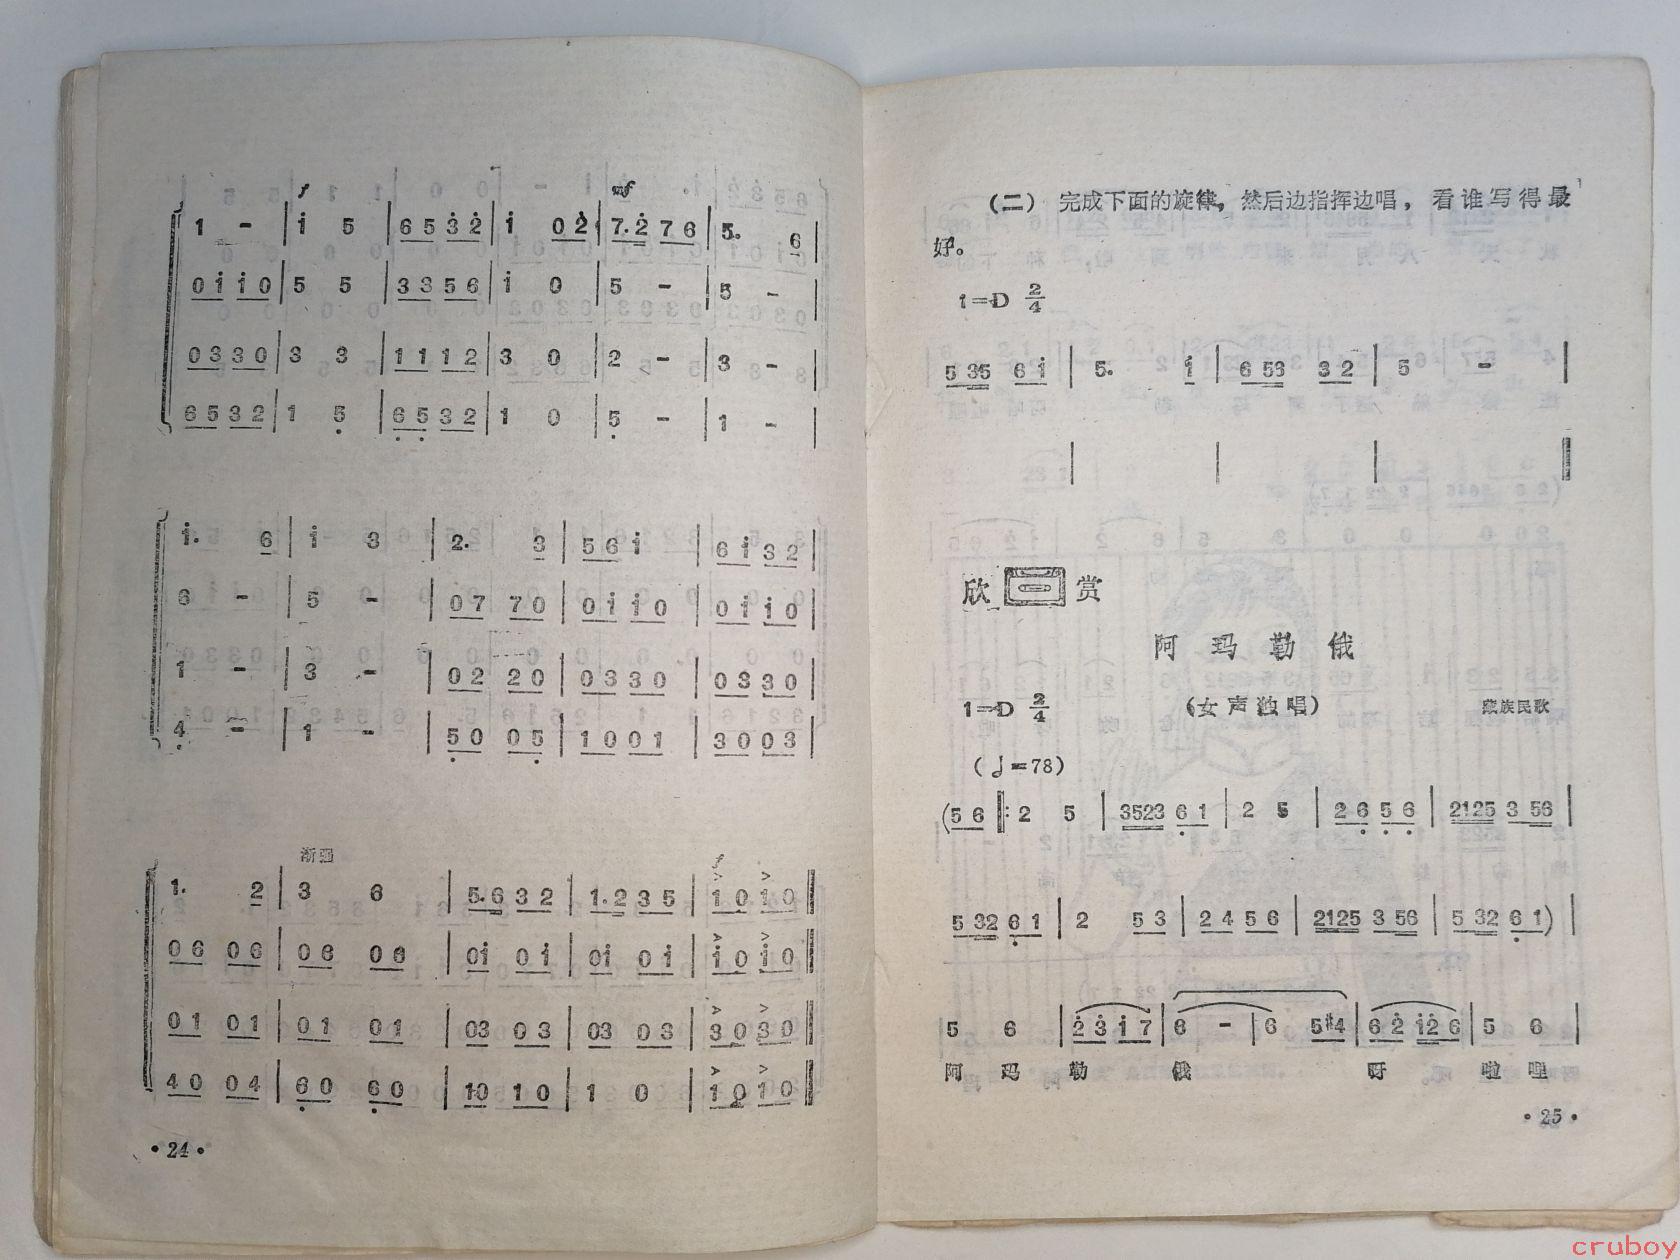 f mf
1 - | i 5 | 6 5 3̇ 2̇ | i 0 2̇ | 7. 2̇ 7 6 | 5. 6 |
0 i i 0 | 5 5 | 3 3 5 6 | i 0 | 5 - | 5 - |
0 3 3 0 | 3 3 | 1 1 1 2 | 3 0 | 2 - | 3 - |
6 5 3 2 | 1 5̣ | 6̣ 5̣ 3 2 | 1 0 | 5̣ - | 1 - |
i. 6 | i 3 | 2. 3 | 5 6 i | 6 i 3 2 |
6 - | 5 - | 0 7 7 0 | 0 i i 0 | 0 i i 0 |
1 - | 3 - | 0 2 2 0 | 0 3 3 0 | 0 3 3 0 |
4̣ - | 1 - | 5̣ 0 0 5̣ | 1 0 0 1 | 3 0 0 3 |
渐强 f
1. 2 | 3 6 | 5. 6 3 2 | 1. 2 3 5 | 1 0 1 0 ‖
0 6 0 6 | 0 6 0 6 | 0 i 0 i | 0 i 0 i | i 0 i 0 ‖
0 1 0 1 | 0 1 0 1 | 0 3 0 3 | 0 3 0 3 | 3 0 3 0 ‖
4 0 0 4 | 6̣ 0 6̣ 0 | 1 0 1 0 | 1 0 | 1 0 1 0 ‖
·24·
(二) 完成下面的旋律，然后边指挥边唱，看谁写得最
好。
1=D 2/4
5 35 6 i | 5. i | 6 56 3 2 | 5 - |
欣 赏
阿玛勒俄
1=D 2/4 (女声独唱) 藏族民歌
(♩=78)
(5 6 ‖: 2 5 | 3523 6̣ 1 | 2 5 | 2 6̣ 5̣ 6̣ | 2125 3 56 |
5 32 6̣ 1 | 2 5 3 | 2 4 5 6 | 2125 3 56 | 5 32 6̣ 1) |
5 6 | 2̇ 3̇ i 7 | 6 - | 6 5 #4 | 6 2̇ i2̇ 6 | 5 6 |
阿 玛 勒 俄 呀 啦 哩
·25·
cruboy